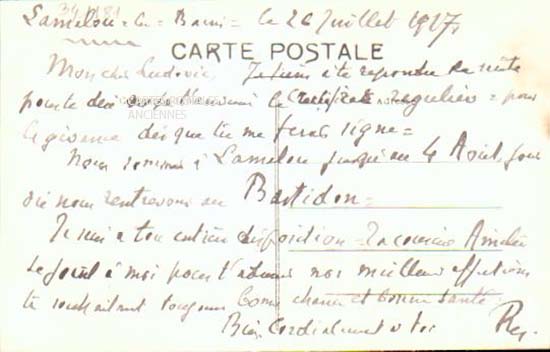 Lamalou-les-Bains = le 26 Juillet 1917,
CARTE POSTALE
Mon cher Ludovic, Je tiens à te répondre de suite
pour te dire le certificat régulier = pour
dès que tu me feras signe =
ANCIENNES
Nous sommes à Lamalou jusqu'au 4 Août, jour
où nous rentrerons au Bastidon =
Je suis à ton entière disposition = La cousine Amélie
se joint à moi pour nos meilleures affections
te souhaitant toujours bonne chance et bonne santé.
Bien cordialement à toi